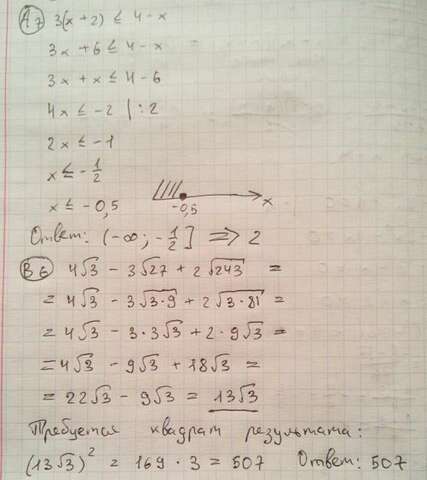 А7 3(x + 2) ≤ 4 - x
3x + 6 ≤ 4 - x
3x + x ≤ 4 - 6
4x ≤ -2 | : 2
2x ≤ -1
x ≤ - 1/2
x ≤ -0,5
-0,5 x
Ответ: (-∞; - 1/2] => 2
В6 4√3 - 3√27 + 2√243 =
= 4√3 - 3√3·9 + 2√3·81 =
= 4√3 - 3·3√3 + 2·9√3 =
= 4√3 - 9√3 + 18√3 =
= 22√3 - 9√3 = 13√3
Требуется квадрат результата:
(13√3)² = 169 · 3 = 507 Ответ: 507